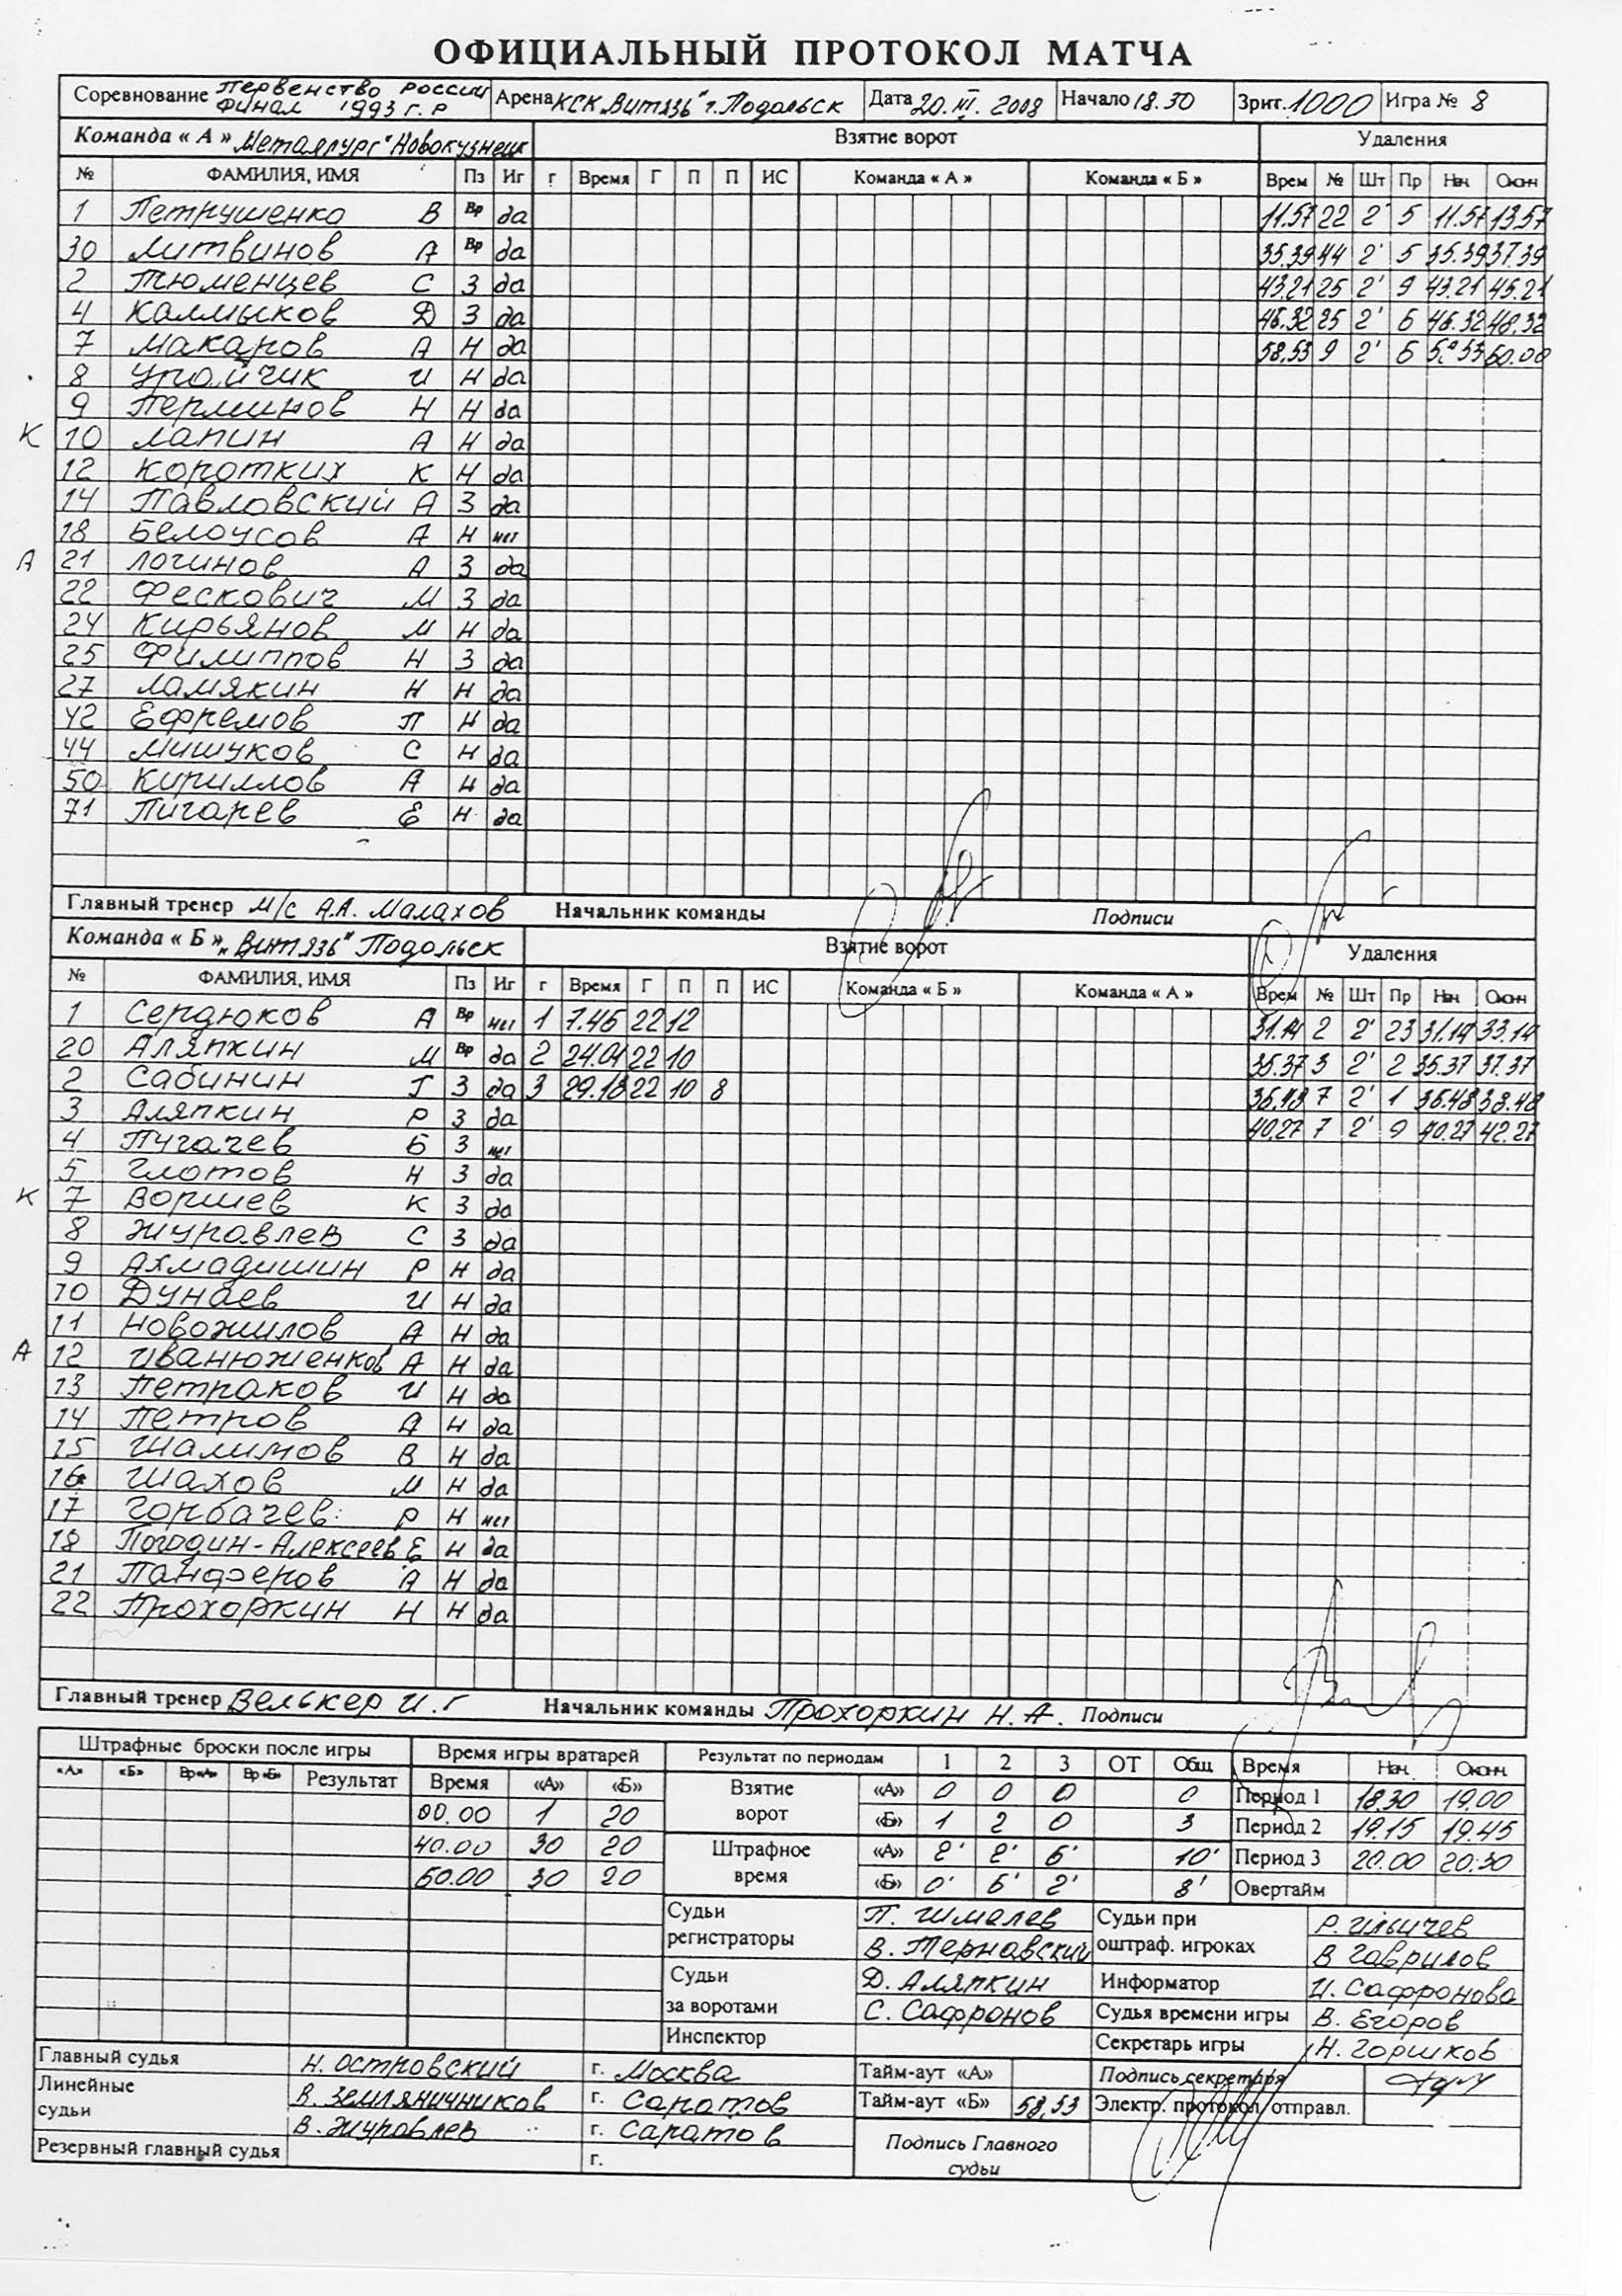 ОФИЦИАЛЬНЫЙ ПРОТОКОЛ МАТЧА
Соревнование Первенство России Финал 1993 г.р Арена КСК "Витязь" г. Подольск Дата 20.III.2008 Начало 18.30 Зрит. 1000 Игра № 8
Команда « А » Металлург" Новокузнецк Взятие ворот Удаления
№ ФАМИЛИЯ, ИМЯ Пз Иг г Время Г П П ИС Команда « А » Команда « Б » Врем № Шт Пр Нач. Оконч
1 Петрушенко В Вр да 11.57 22 2' 5 11.57 13.57
30 Литвинов А Вр да 35.39 44 2' 5 35.39 37.39
2 Тюменцев С З да 43.21 25 2' 9 43.21 45.21
4 Калмыков Д З да 46.32 25 2' 6 46.32 48.32
7 Макаров А Н да 58.53 9 2' 6 58.53 60.00
8 Урайчик И Н да
9 Перминов Н Н да
К 10 Лапин А Н да
12 Коротких К Н да
14 Павловский А З да
18 Белоусов А Н нет
А 21 Логинов А З да
22 Фескович М З да
24 Кирьянов М Н да
25 Филиппов Н З да
27 Ламякин Н Н да
42 Ефремов П Н да
44 Мишуков С Н да
50 Кириллов А Н да
71 Пигарев Е Н да
Главный тренер М/С А.А. Малахов Начальник команды Подписи
Команда « Б » "Витязь" Подольск Взятие ворот Удаления
№ ФАМИЛИЯ, ИМЯ Пз Иг г Время Г П П ИС Команда « Б » Команда « А » Врем № Шт Пр Нач. Оконч
1 Сердюков А Вр нет 1 7.46 22 12 31.14 2 2' 23 31.14 33.14
20 Аляпкин М Вр да 2 24.01 22 10 35.37 3 2' 2 35.37 37.37
2 Сабинин Г З да 3 29.18 22 10 8 36.48 7 2' 1 36.48 38.48
3 Аляпкин Р З да 40.27 7 2' 9 40.27 42.27
4 Пугачев Б З нет
5 Глотов Н З да
К 7 Воршев К З да
8 Журавлев С З да
9 Ахмадишин Р Н да
10 Дунаев И Н да
11 Новожилов А Н да
А 12 Иванюженков А Н да
13 Петраков И Н да
14 Петров А Н да
15 Шалимов В Н да
16 Шахов М Н да
17 Горбачев Р Н нет
18 Погодин-Алексеев Е Н да
21 Панферов А Н да
22 Прохоркин Н Н да
Главный тренер Велькер И.Г Начальник команды Прохоркин Н.А. Подписи
Штрафные броски после игры Время игры вратарей Результат по периодам 1 2 3 ОТ Общ. Время Нач. Оконч.
«А» «Б» Вр«А» Вр«Б» Результат Время «А» «Б» Взятие ворот «А» 0 0 0 0 Период 1 18.30 19.00
00.00 1 20 «Б» 1 2 0 3 Период 2 19.15 19.45
40.00 30 20 Штрафное время «А» 2' 2' 6' 10' Период 3 20.00 20.30
60.00 30 20 «Б» 0' 6' 2' 8' Овертайм
Судьи регистраторы П. Шмалев Судьи при оштраф. игроках Р. Ильичев
В. Тернавский В Гаврилов
Судьи за воротами Д. Аляпкин Информатор И. Сафронова
С. Сафронов Судья времени игры В. Егоров
Инспектор Секретарь игры Н. Горшков
Главный судья Н. Островский г. Москва Тайм-аут «А» Подпись секретаря
Линейные судьи В. Земляничников г. Саратов Тайм-аут «Б» 58,53 Электр. протокол отправл.
В. Журавлев г. Саратов Подпись Главного судьи
Резервный главный судья г.